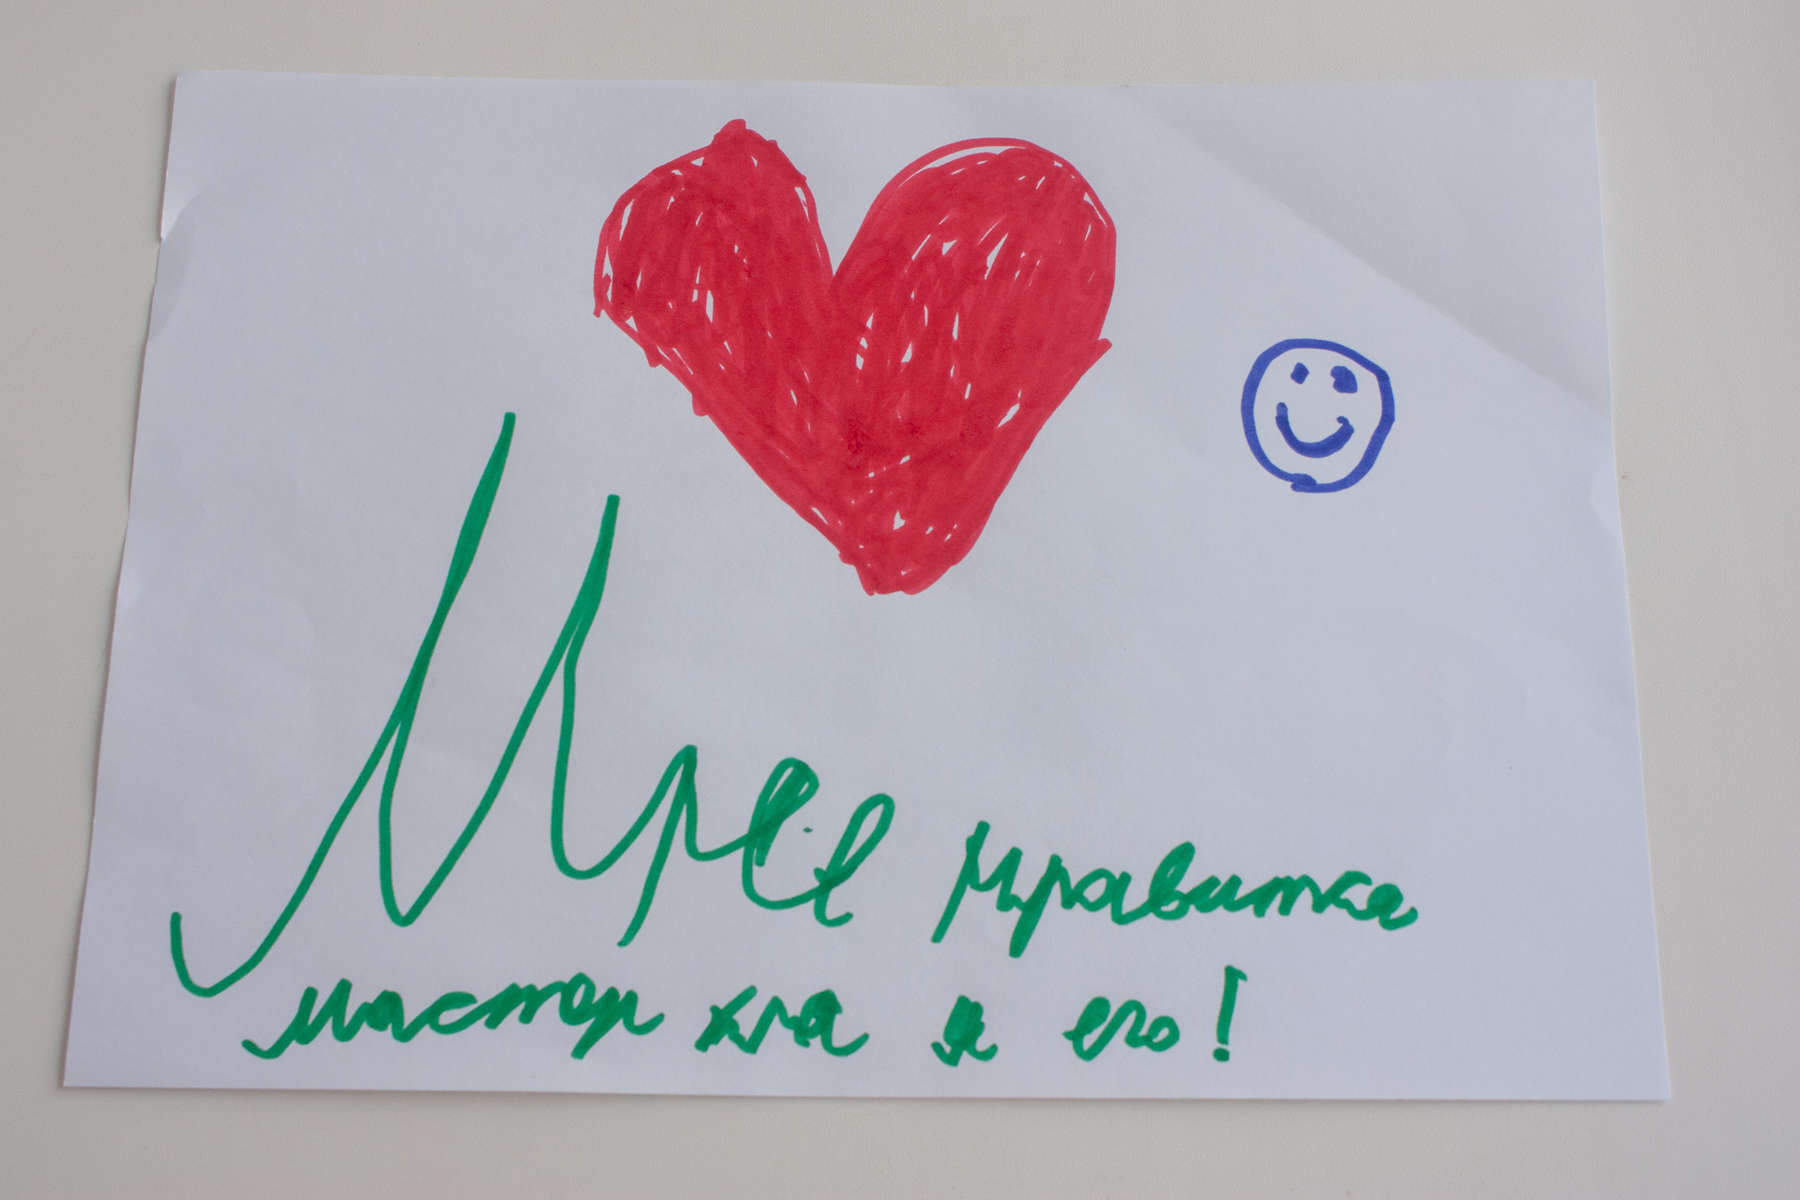 Мне нравитса
мастер кла я его!